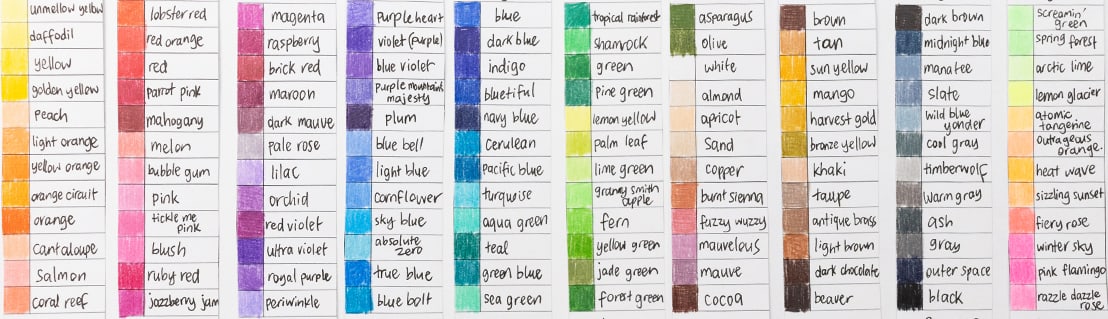 unmellow yellow
daffodil
yellow
golden yellow
peach
light orange
yellow orange
orange circuit
orange
cantaloupe
Salmon
coral reef
lobster red
red orange
red
parrot pink
mahogany
melon
bubble gum
pink
tickle me
pink
blush
ruby red
jazzberry jam
magenta
raspberry
brick red
maroon
dark mauve
pale rose
lilac
orchid
red violet
ultra violet
royal purple
periwinkle
purple heart
violet (purple)
blue violet
purple mountains
majesty
plum
blue bell
light blue
cornflower
sky blue
absolute
zero
true blue
blue bolt
blue
dark blue
indigo
bluetiful
navy blue
cerulean
Pacific blue
turquoise
aqua green
teal
green blue
sea green
tropical rainforest
shamrock
green
Pine green
lemon yellow
palm leaf
lime green
granny smith
apple
fern
yellow green
jade green
forest green
asparagus
olive
white
almond
apricot
Sand
copper
burnt sienna
fuzzy wuzzy
mauvelous
mauve
cocoa
brown
tan
sun yellow
mango
harvest gold
bronze yellow
khaki
taupe
antique brass
light brown
dark chocolate
beaver
dark brown
midnight blue
manatee
slate
wild blue
yonder
cool gray
timberwolf
warm gray
ash
gray
outer space
black
screamin'
green
spring forest
arctic lime
lemon glacier
atomic
tangerine
outrageous
orange
heat wave
sizzling sunset
fiery rose
winter sky
pink flamingo
razzle dazzle
rose